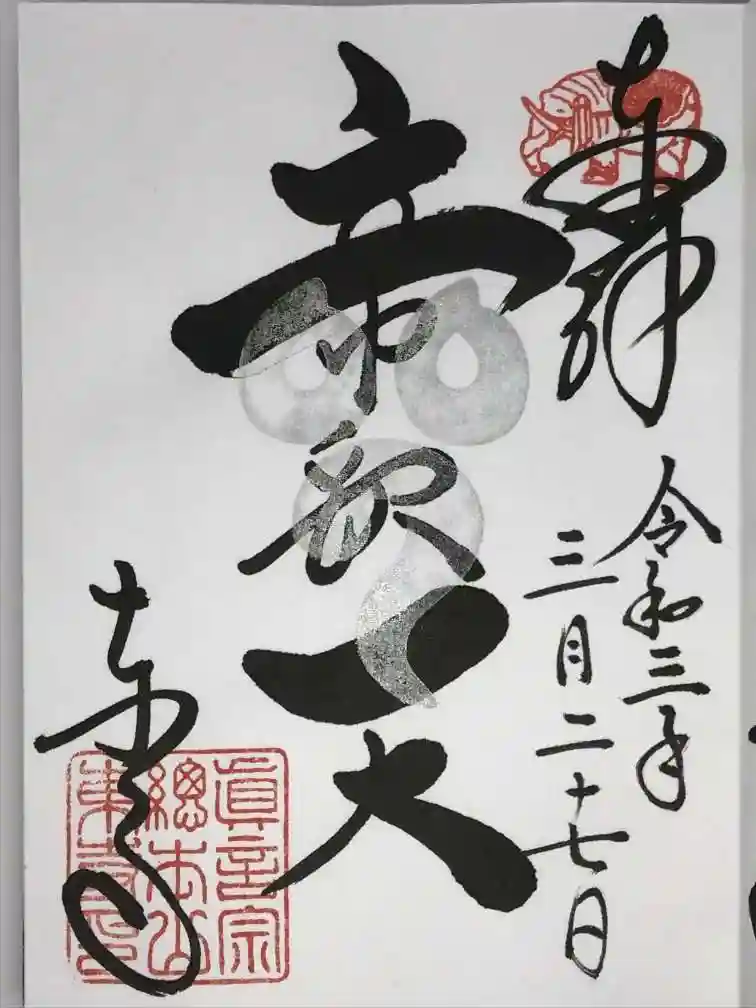 奉拝
令和三年
三月二十七日
帝釈天
東寺
眞言宗
總本山
東寺印